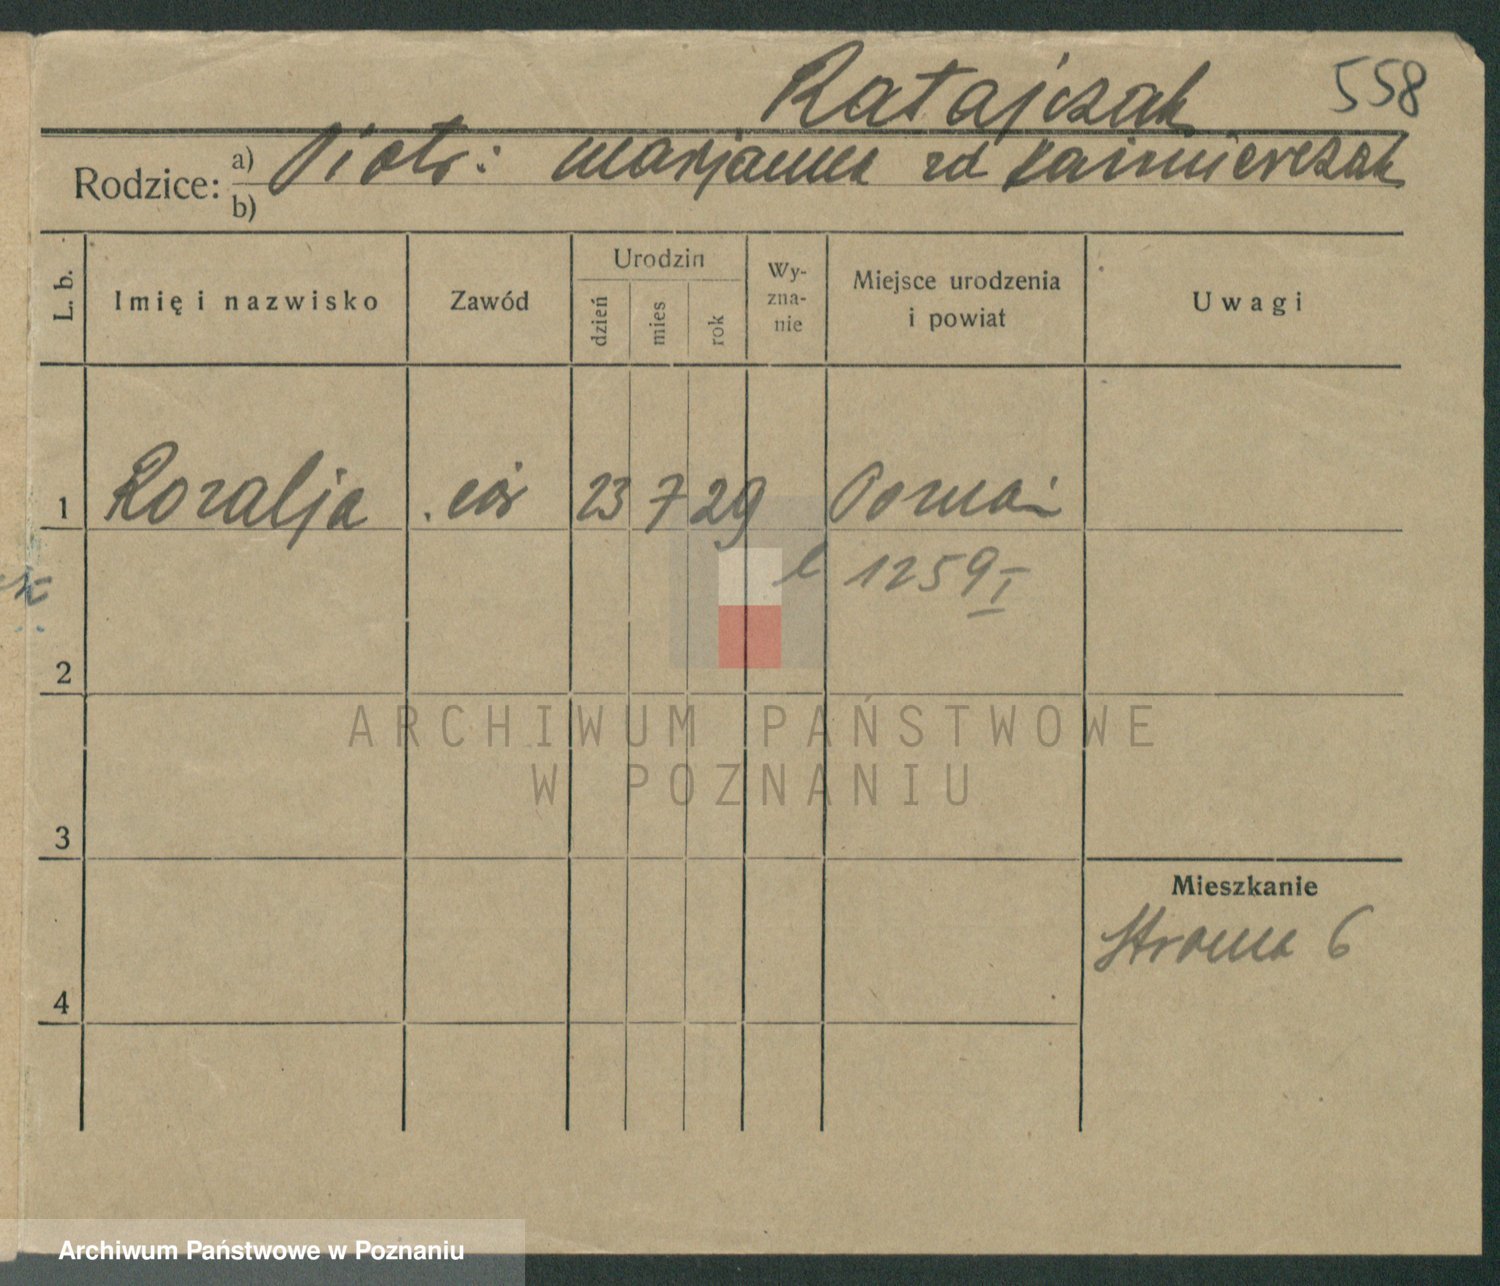 Ratajczak 558
Rodzice: a) Piotr: Marjanna zd Kaźmierczak
b)
L. b. Imię i nazwisko Zawód Urodzin dzień mies rok Wy-zna-nie Miejsce urodzenia i powiat Uwagi
1 Rozalja 23 7 29 Poznań
1259 I
2
ARCHIWUM PAŃSTWOWE
W POZNANIU
3
Mieszkanie
Stroma 6
4
Archiwum Państwowe w Poznaniu